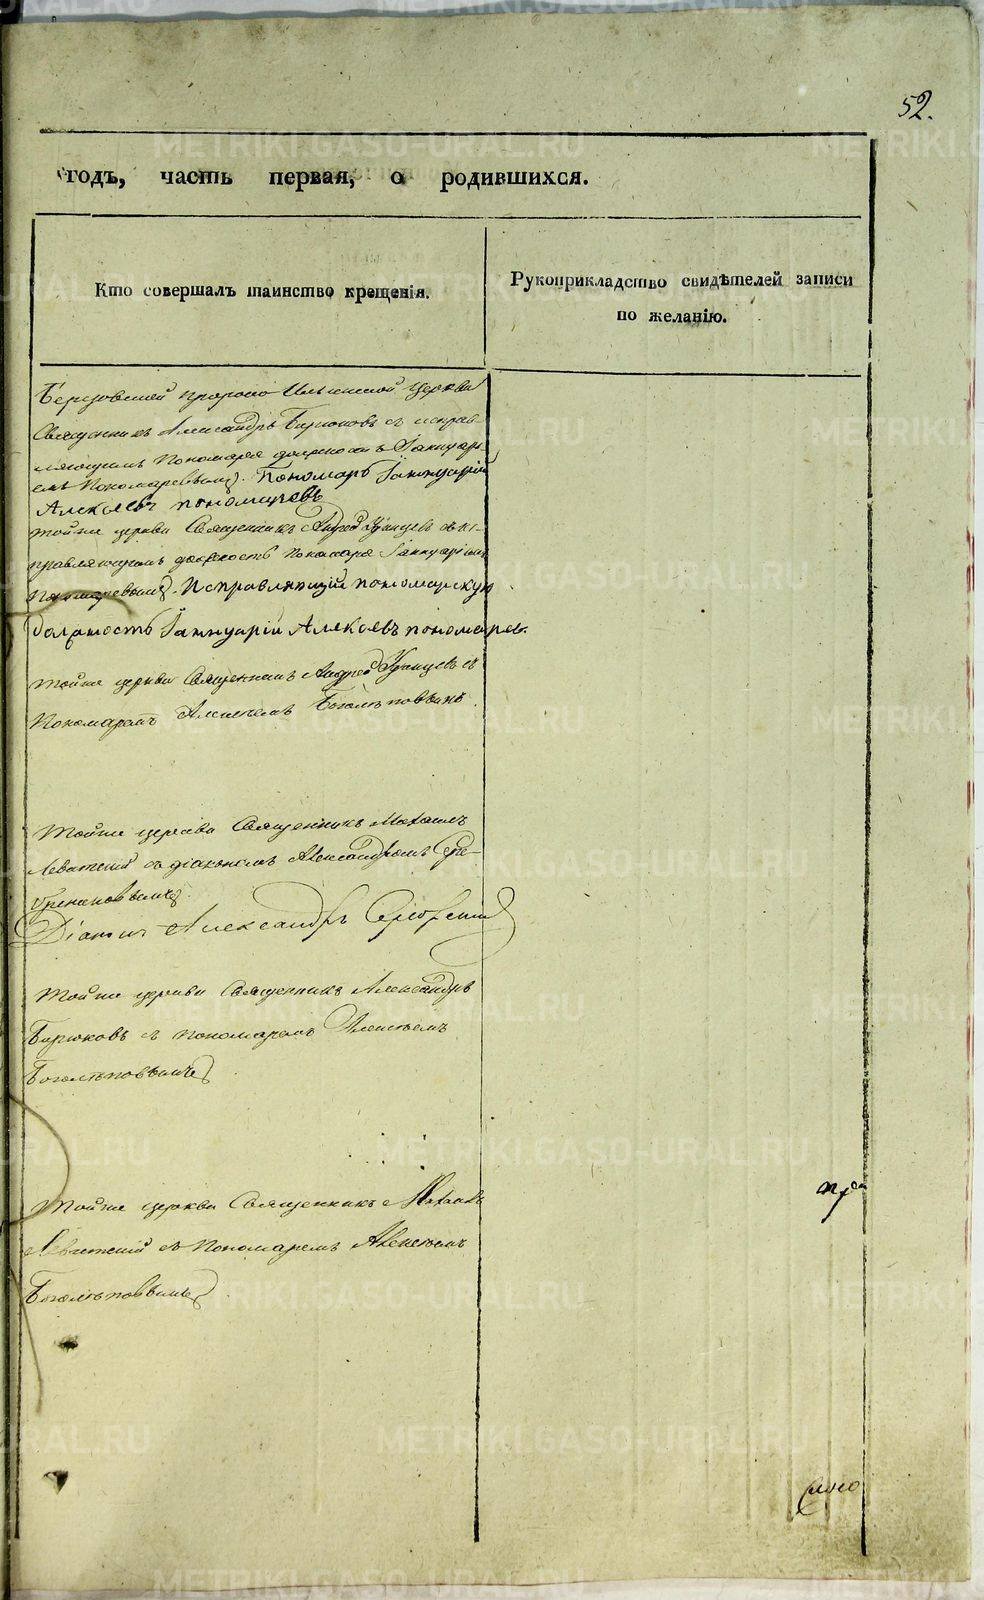 52.
годъ, часть первая, о родившихся.
Кто совершалъ таинство крещенія.
Рукоприкладство свидѣтелей записи
по желанію.
Березовской пророко Ильинской церкви
Священникъ Александръ Бирюковъ съ исправ-
ляющимъ пономаря должность Іаннуарі-
емъ Пономаревымъ. Пономарь Іаннуарій
Алексѣевъ пономаревъ
тойже церкви Священникъ Андрей Удинцевъ съ ис-
правляющимъ должность пономаря Іаннуаріемъ
Пономаревымъ. Исправляющій пономарскую
должность Іаннуарій Алексѣевъ пономаревъ.
тойже церкви Священникъ Андрей Удинцевъ съ
Пономаремъ Алексѣемъ Боголѣповымъ.
Тойже церкви Священникъ Михаилъ
Левитскій съ діакономъ Александромъ Сере-
брениковымъ
Діаконъ Александръ
Тойже церкви Священникъ Александръ
Бирюковъ съ пономаремъ Алексѣемъ
Боголѣповымъ
Тойже церкви Священникъ Михаилъ
Левитскій съ Пономаремъ Алексѣемъ
Боголѣповымъ.
METRIKI.GASO-URAL.RU